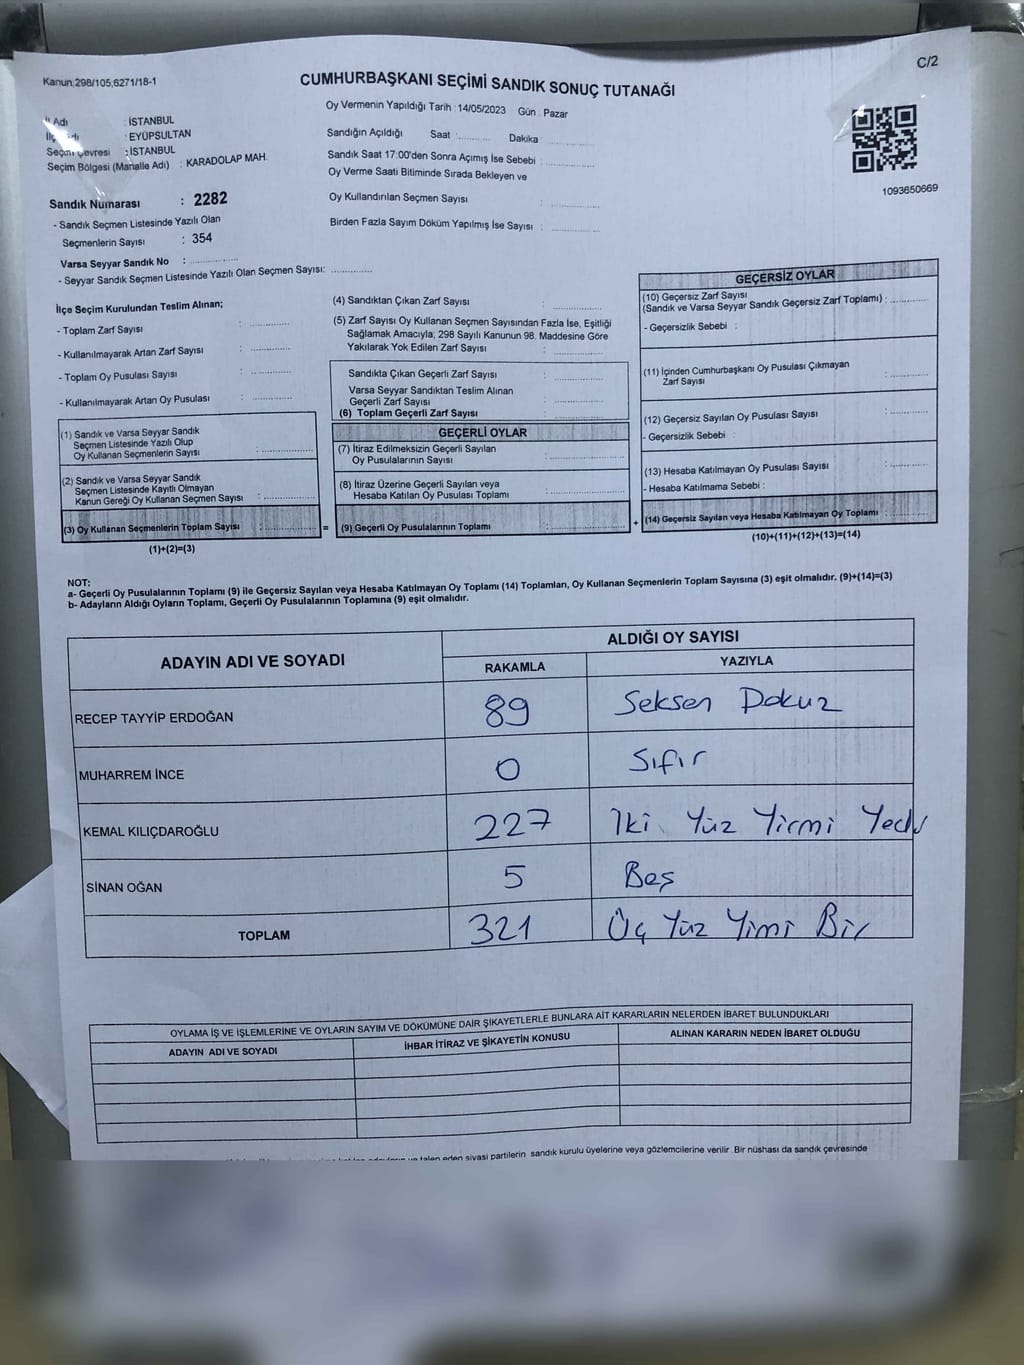 C/2
Kanun:298/105;6271/18-1
CUMHURBAŞKANI SEÇİMİ SANDIK SONUÇ TUTANAĞI
Oy Vermenin Yapıldığı Tarih : 14/05/2023 Gün : Pazar
İl Adı : İSTANBUL
: EYÜPSULTAN
Seçim Çevresi : İSTANBUL
Seçim Bölgesi (Mahalle Adı) : KARADOLAP MAH.
Sandığın Açıldığı Saat :.......... Dakika ..........
Sandık Saat 17:00'den Sonra Açımış İse Sebebi : ..........
Oy Verme Saati Bitiminde Sırada Bekleyen ve
Oy Kullandırılan Seçmen Sayısı : ..........
Birden Fazla Sayım Döküm Yapılmış İse Sayısı : ..........
1093650669
Sandık Numarası : 2282
- Sandık Seçmen Listesinde Yazılı Olan
Seçmenlerin Sayısı : 354
Varsa Seyyar Sandık No : ..........
- Seyyar Sandık Seçmen Listesinde Yazılı Olan Seçmen Sayısı: ..........
İlçe Seçim Kurulundan Teslim Alınan;
- Toplam Zarf Sayısı : ..........
- Kullanılmayarak Artan Zarf Sayısı : ..........
- Toplam Oy Pusulası Sayısı : ..........
- Kullanılmayarak Artan Oy Pusulası : ..........
(1) Sandık ve Varsa Seyyar Sandık
Seçmen Listesinde Yazılı Olup
Oy Kullanan Seçmenlerin Sayısı : ..........
(2) Sandık ve Varsa Seyyar Sandık
Seçmen Listesinde Kayıtlı Olmayan
Kanun Gereği Oy Kullanan Seçmen Sayısı : ..........
(3) Oy Kullanan Seçmenlerin Toplam Sayısı : ..........
(1)+(2)=(3)
(4) Sandıktan Çıkan Zarf Sayısı : ..........
(5) Zarf Sayısı Oy Kullanan Seçmen Sayısından Fazla İse, Eşitliği
Sağlamak Amacıyla; 298 Sayılı Kanunun 98. Maddesine Göre
Yakılarak Yok Edilen Zarf Sayısı : ..........
Sandıkta Çıkan Geçerli Zarf Sayısı : ..........
Varsa Seyyar Sandıktan Teslim Alınan
Geçerli Zarf Sayısı : ..........
(6) Toplam Geçerli Zarf Sayısı : ..........
GEÇERLİ OYLAR
(7) İtiraz Edilmeksizin Geçerli Sayılan
Oy Pusulalarının Sayısı : ..........
(8) İtiraz Üzerine Geçerli Sayılan veya
Hesaba Katılan Oy Pusulası Toplamı : ..........
= (9) Geçerli Oy Pusulalarının Toplamı : ..........
GEÇERSİZ OYLAR
(10) Geçersiz Zarf Sayısı
(Sandık ve Varsa Seyyar Sandık Geçersiz Zarf Toplamı) : ..........
- Geçersizlik Sebebi :
(11) İçinden Cumhurbaşkanı Oy Pusulası Çıkmayan
Zarf Sayısı : ..........
(12) Geçersiz Sayılan Oy Pusulası Sayısı : ..........
- Geçersizlik Sebebi :
(13) Hesaba Katılmayan Oy Pusulası Sayısı : ..........
- Hesaba Katılmama Sebebi :
+ (14) Geçersiz Sayılan veya Hesaba Katılmayan Oy Toplamı : ..........
(10)+(11)+(12)+(13)=(14)
NOT:
a- Geçerli Oy Pusulalarının Toplamı (9) ile Geçersiz Sayılan veya Hesaba Katılmayan Oy Toplamı (14) Toplamları, Oy Kullanan Seçmenlerin Toplam Sayısına (3) eşit olmalıdır. (9)+(14)=(3)
b- Adayların Aldığı Oyların Toplamı, Geçerli Oy Pusulalarının Toplamına (9) eşit olmalıdır.
ADAYIN ADI VE SOYADI
ALDIĞI OY SAYISI
RAKAMLA YAZIYLA
RECEP TAYYİP ERDOĞAN 89 Seksen Dokuz
MUHARREM İNCE 0 Sıfır
KEMAL KILIÇDAROĞLU 227 İki Yüz Yirmi Yedi
SİNAN OĞAN 5 Beş
TOPLAM 321 Üç Yüz Yimi Bir
OYLAMA İŞ VE İŞLEMLERİNE VE OYLARIN SAYIM VE DÖKÜMÜNE DAİR ŞİKAYETLERLE BUNLARA AİT KARARLARIN NELERDEN İBARET BULUNDUKLARI
ADAYIN ADI VE SOYADI İHBAR İTİRAZ VE ŞİKAYETİN KONUSU ALINAN KARARIN NEDEN İBARET OLDUĞU
talep eden siyasi partilerin sandık kurulu üyelerine veya gözlemcilerine verilir .Bir nüshası da sandık çevresinde